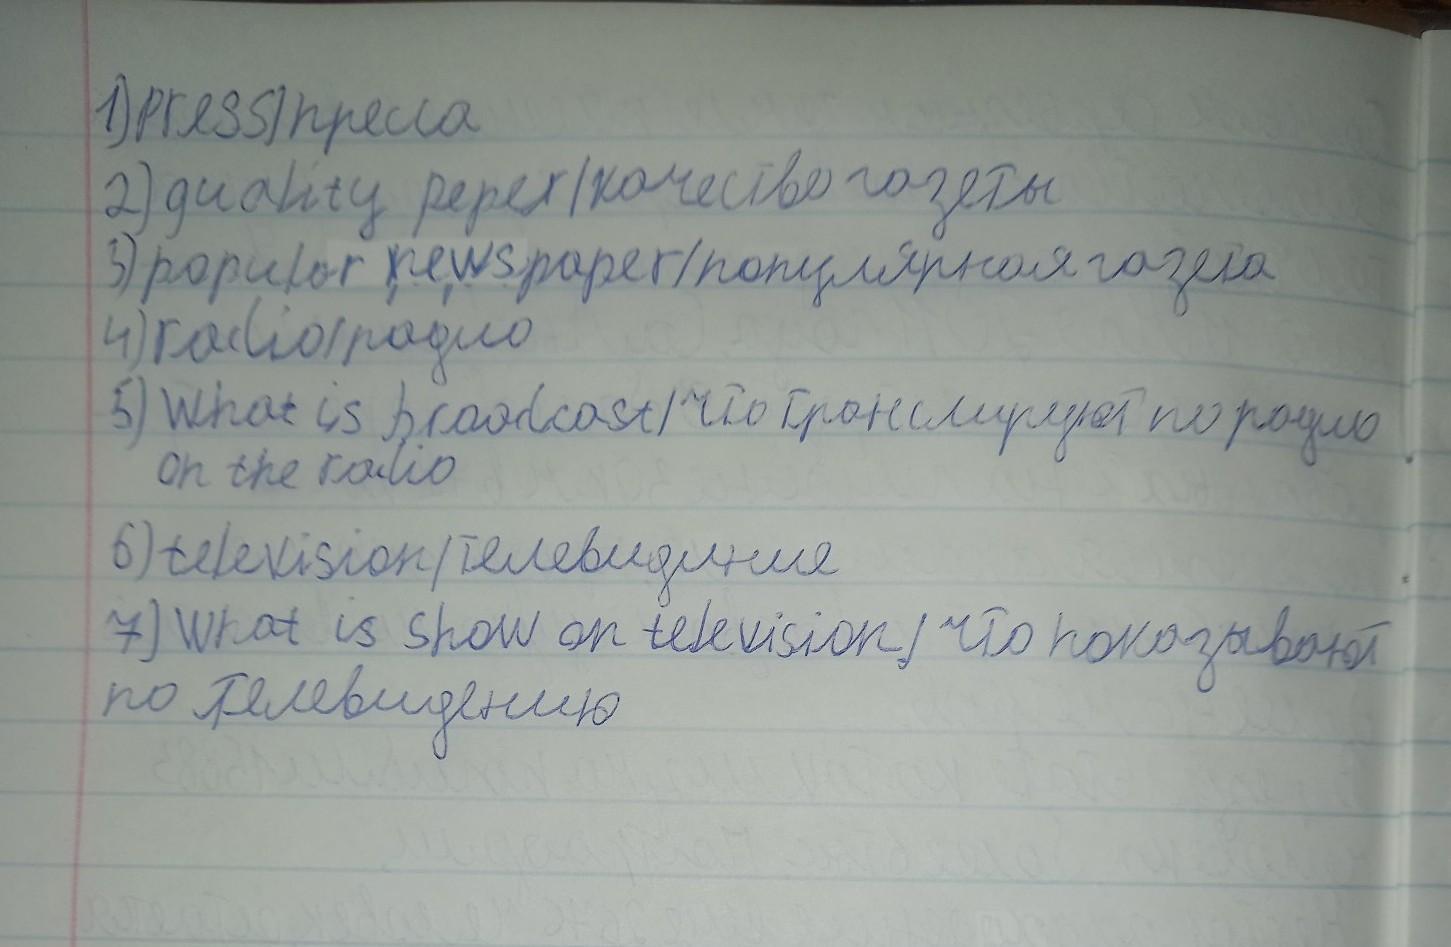 1) press/пресса
2) quality peper/качество газеты
3) popular newspaper/популярная газета
4) radio/радио
5) What is broadcast/что транслируют по радио
on the radio
6) television/телевидение
7) What is show on television/что показывают
по телевидению